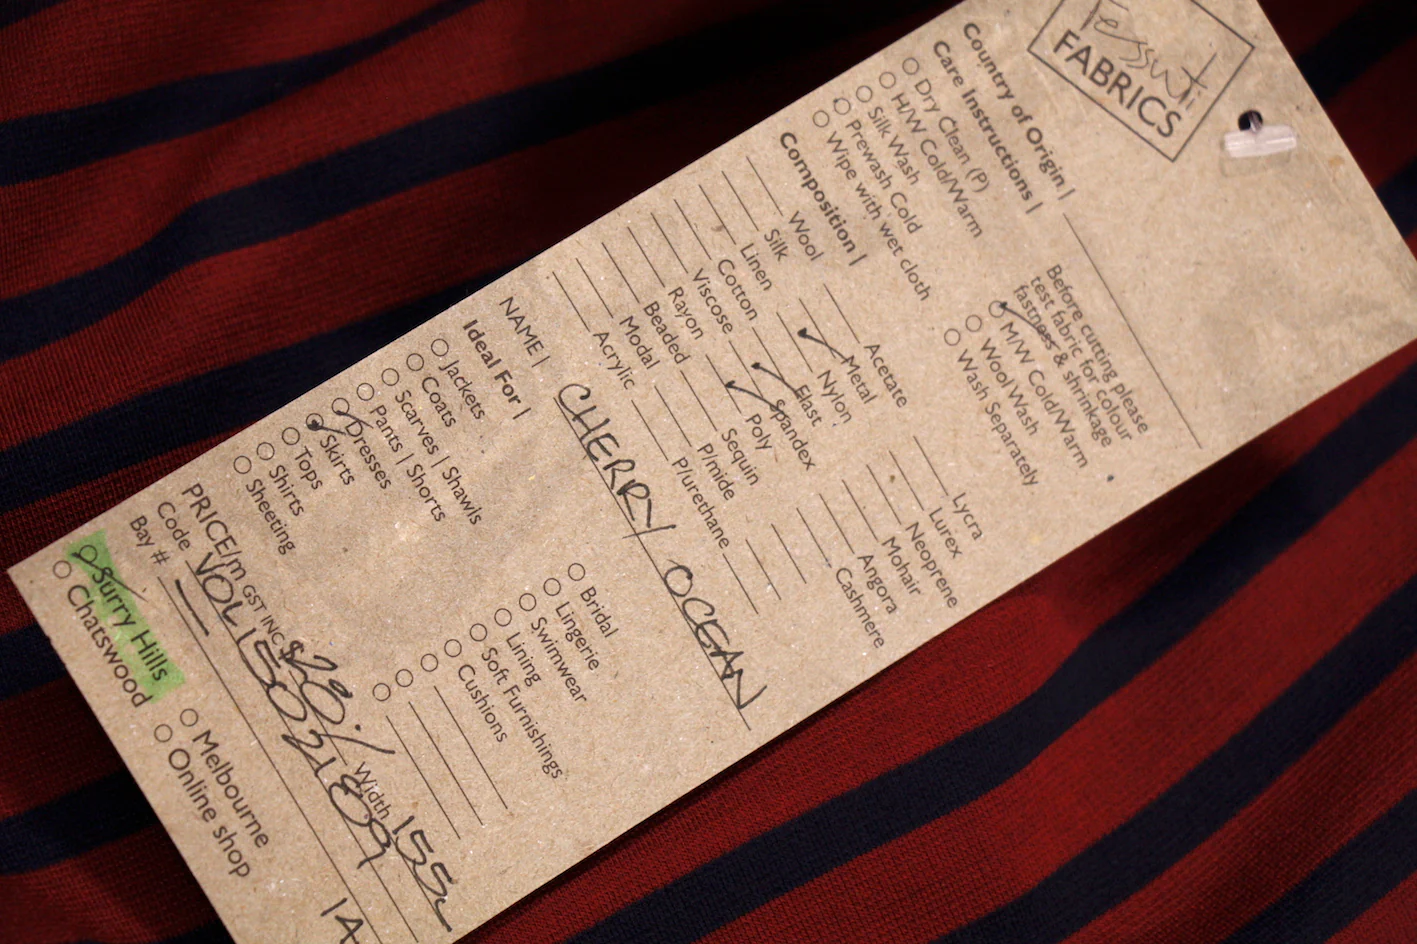 Tessuti
FABRICS
Country of Origin |
Care Instructions |
Dry Clean (P)
H/W Cold/Warm
Silk Wash
Prewash Cold
Wipe with wet cloth
Before cutting please
test fabric for colour
fastness & shrinkage
M/W Cold/Warm
Wool Wash
Wash Separately
Composition |
Wool
Silk
Linen
Cotton
Viscose
Rayon
Beaded
Modal
Acrylic
Acetate
Metal
Nylon
Elast
Spandex
Poly
Sequin
P/mide
P/urethane
Lycra
Lurex
Neoprene
Mohair
Angora
Cashmere
NAME | CHERRY OCEAN
Ideal For |
Jackets
Coats
Scarves | Shawls
Pants | Shorts
Dresses
Skirts
Tops
Shirts
Sheeting
Bridal
Lingerie
Swimwear
Lining
Soft Furnishings
Cushions
PRICE/m GST INC $ Width 155
Code
Bay # 14
Surry Hills
Chatswood
Melbourne
Online shop